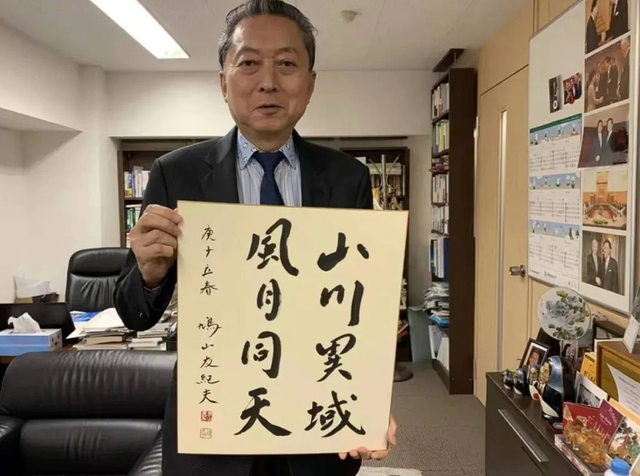 山川異域
風月同天
庚子立春 鳩山友紀夫